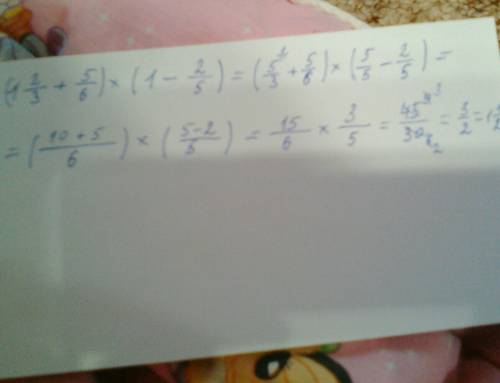 (1 2/3 + 5/6) × (1 − 2/5) = (5/3 + 5/6) × (5/5 − 2/5) =
= (10+5/6) × (5−2/5) = 15/6 × 3/5 = 45/30 = 3/2 = 1 1/2